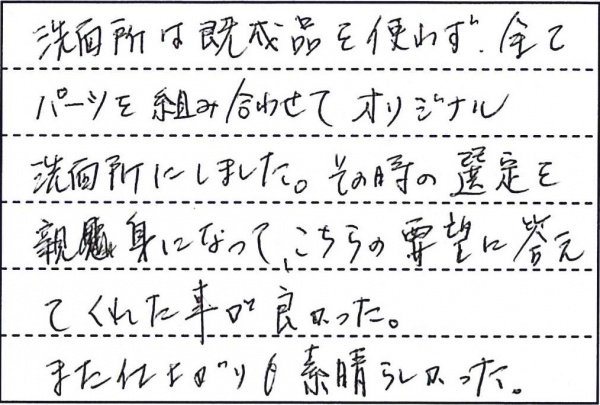 洗面所は既成品を使わず、全て
パーツを組み合わせてオリジナル
洗面所にしました。その時の選定を
親身になって、こちらの要望に答え
てくれた事が良かった。
また仕上がりも素晴らしかった。